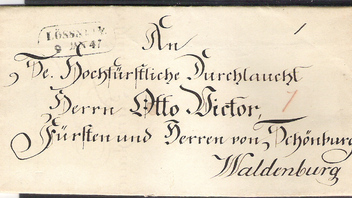 LÖSSNITZ
9 JUN 47
An
Se. Hochfürstliche Durchlaucht
Herrn Otto Victor,
Fürsten und Herren von Schönburg
Waldenburg